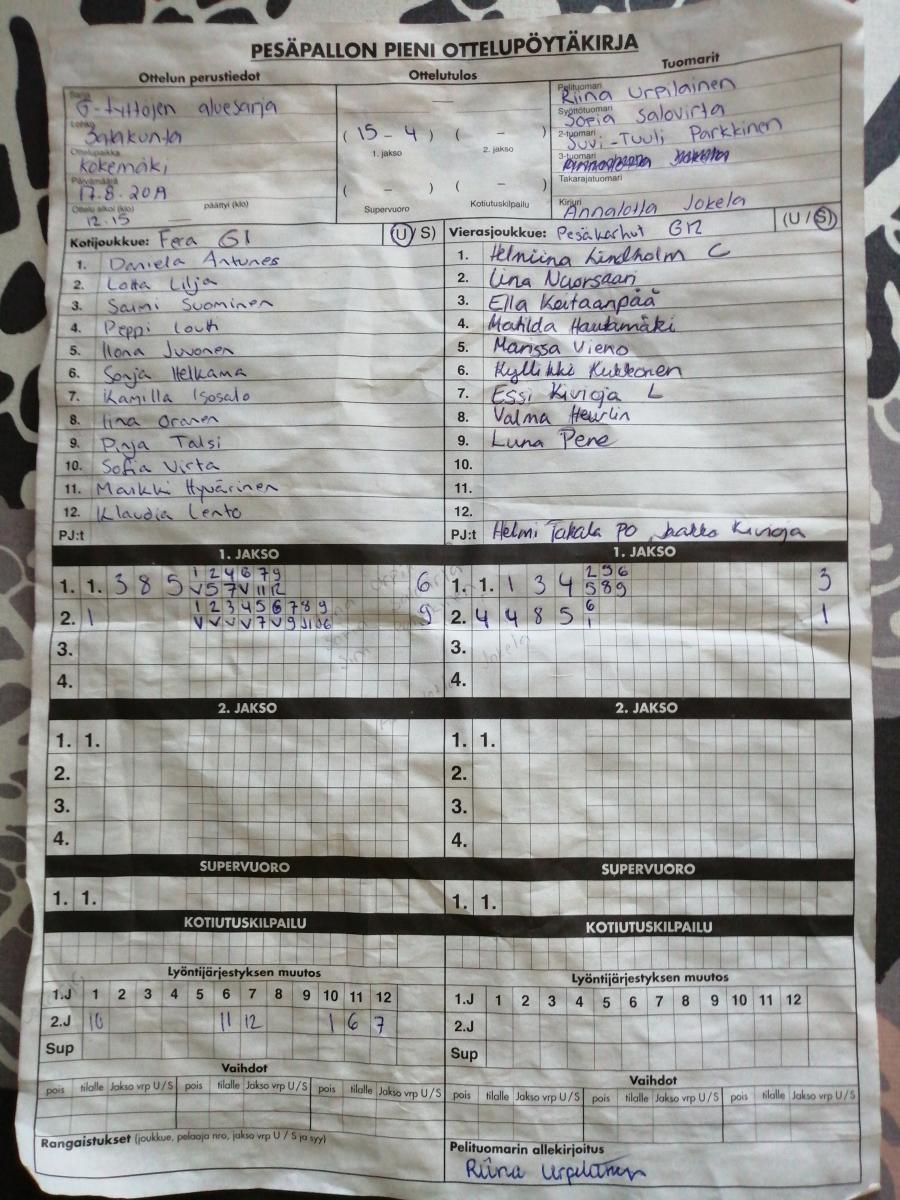 PESÄPALLON PIENI OTTELUPÖYTÄKIRJA
Ottelun perustiedot
Ottelutulos
Tuomarit
Sarja
G-tyttöjen aluesarja
Lohko
Satakunta
Ottelupaikka
Kokemäki
Päivämäärä
17.8.2019
Ottelu alkoi (klo)
päättyi (klo)
12.15
( 15 - 4 ) ( - )
1. jakso 2. jakso
( - ) ( - )
Supervuoro Kotiutuskilpailu
Pelituomari
Riina Urpilainen
Syöttötuomari
Sofia Salovirta
2-tuomari
Suvi-Tuuli Parkkinen
3-tuomari
Takarajatuomari
Kirjuri
Annalotta Jokela
Kotijoukkue: Fera G1 (U/S)
1. Daniela Antunes
2. Lotta Lilja
3. Saimi Suominen
4. Peppi Louhi
5. Ilona Juvonen
6. Sonja Helkama
7. Kamilla Isosalo
8. Iina Oranen
9. Pinja Talsi
10. Sofia Virta
11. Maikki Hyvärinen
12. Klaudia Lehto
PJ:t
Vierasjoukkue: Pesäkarhut (U/S)
1. Helmiina Lindholm C
2. Iina Nuorsaari
3. Ella Koitaanpää
4. Matilda Hautamäki
5. Marissa Vieno
6. Kyllikki Kukkonen
7. Essi Kivioja L
8. Valma Heurlin
9. Luna Pere
10.
11.
12.
PJ:t Helmi Takala PO Jaakko Kivioja
1. JAKSO
1. 1. 3 8 5 1 2 4 6 7 9 6
V 5 7 V 11 12
2. 1 1 2 3 4 5 6 7 8 9 9
3.
4.
1. JAKSO
1. 1. 1 3 4 2 5 6 3
5 8 9
2. 4 4 8 5 6 1
1
3.
4.
2. JAKSO
1. 1.
2.
3.
4.
2. JAKSO
1. 1.
2.
3.
4.
SUPERVUORO
1. 1.
SUPERVUORO
1. 1.
KOTIUTUSKILPAILU
KOTIUTUSKILPAILU
Lyöntijärjestyksen muutos
1.J 1 2 3 4 5 6 7 8 9 10 11 12
2.J 10 11 12 1 6 7
Sup
Lyöntijärjestyksen muutos
1.J 1 2 3 4 5 6 7 8 9 10 11 12
2.J
Sup
Vaihdot
pois tilalle Jakso vrp U/S pois tilalle Jakso vrp U/S pois tilalle Jakso vrp U/S
Vaihdot
pois tilalle Jakso vrp U/S pois tilalle Jakso vrp U/S pois tilalle Jakso vrp U/S
Rangaistukset (joukkue, pelaaja nro, jakso vrp U / S ja syy)
Pelituomarin allekirjoitus
Riina Urpilainen